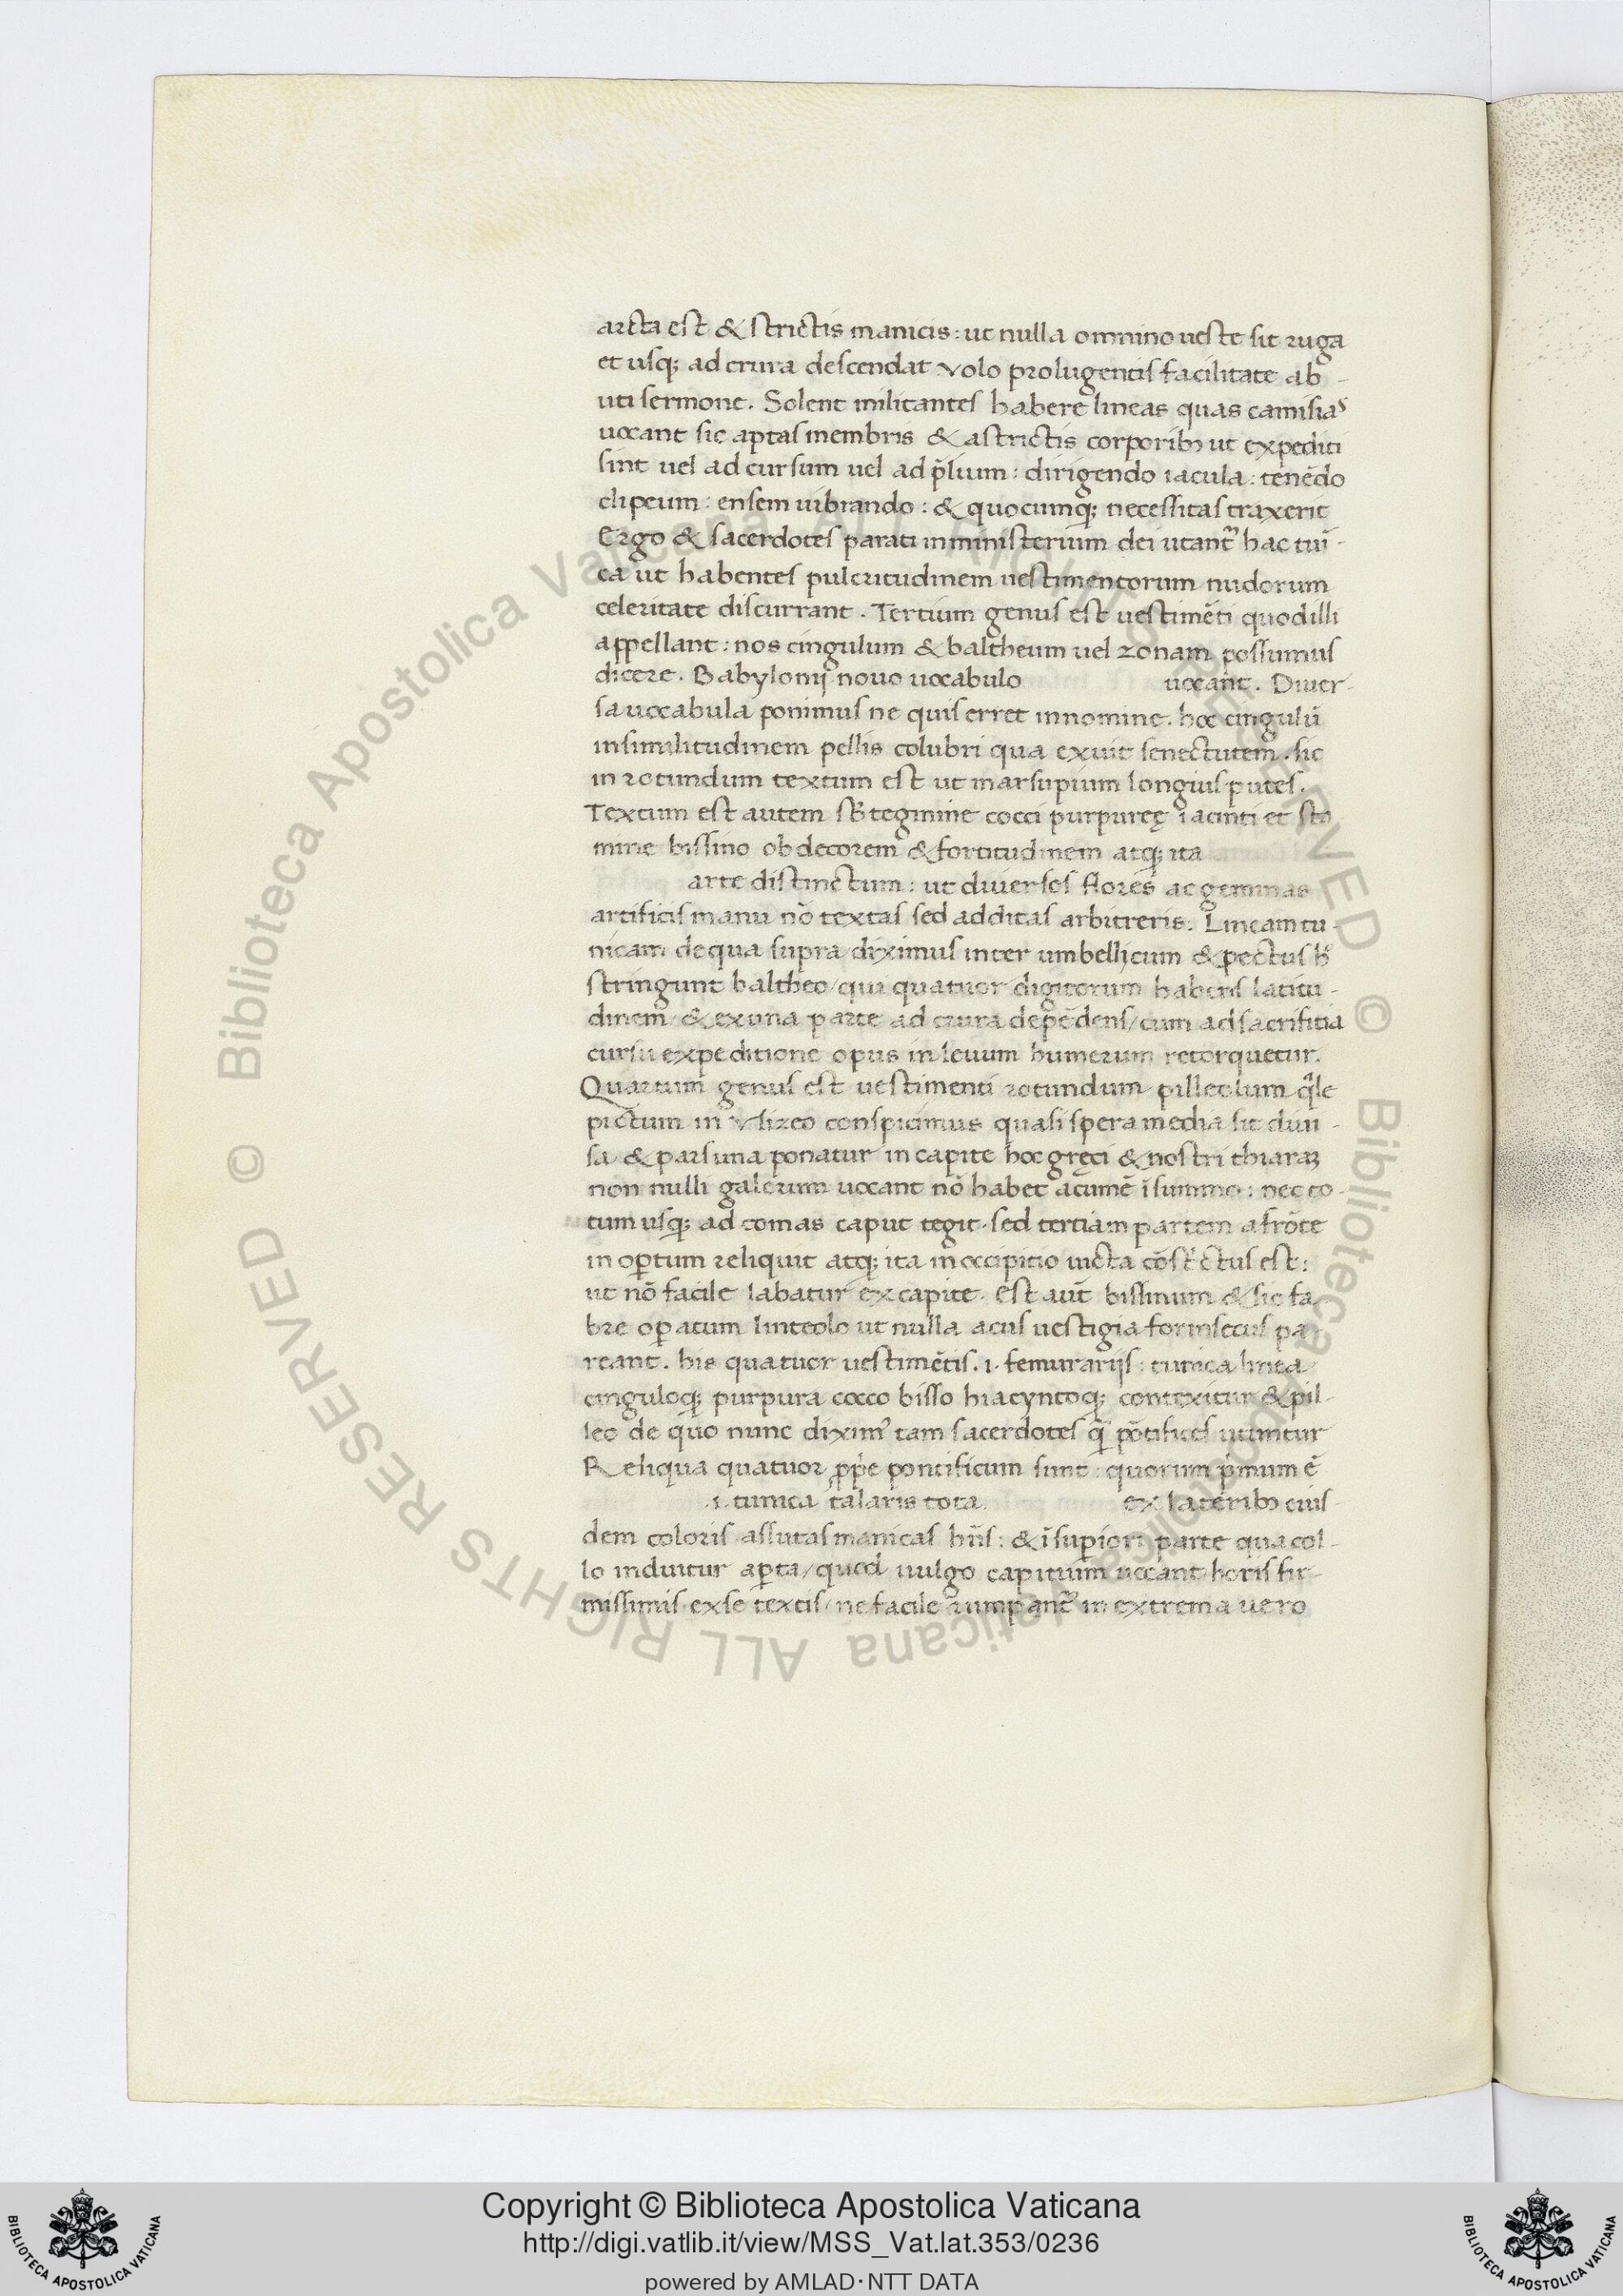 arcta est & strictis manicis: ut nulla omnino ueste sit ruga
et usq; ad crura descendat. Volo prolugentis facilitate ab-
uti sermone. Solent militantes habere lineas quas camisias
uocant sic aptas membris & astrictis corporib; ut expediti
sint uel ad cursum uel ad p̄lium: dirigendo iacula: tenēdo
clipeum: ensem uibrando: & quocumq; necessitas traxerit
Ergo & sacerdotes parati in ministerium dei utant᷑ hac tūi-
ca ut habentes pulcritudinem uestimentorum nudorum
celeritate discurrant. Tertium genus est uestimēti quod illi
appellant: nos cingulum & baltheum uel zonam possumus
dicere. Babylonij nouo uocabulo uocant. Diuer-
sa uocabula ponimus ne quis erret in nomine. hoc cingulū
in similitudinem pellis colubri qua exuit senectutem. sic
in rotundum textum est ut marsupium longius putes.
Textum est autem sƀtegmine cocci purpurę iacinti et sta
mine bissino ob decorem & fortitudinem atq; ita
arte distinctum: ut diuersos flores ac gemmas
artificis manu nō textas sed additas arbitreris. Lineam tu-
nicam de qua supra diximus inter umbellicum & pectus h̊
stringunt baltheo/ qui quatuor digitorum habens latitu-
dinem/ & ex una parte ad crura depēdens/ cum ad sacrifitia
cursu expeditione opus in leuum humerum retorquetur.
Quartum genus est uestimenti rotundum pilleolum q̄le
pictum in Vlixeo conspicimus quasi spera media sit diui-
sa & pars una ponatur in capite hoc gręci & nostri thiaraꝫ
non nulli galerum uocant nō habet acumē ī summo: nec to-
tum usq; ad comas caput tegit. sed tertiam partem a frōte
in op̄tum reliquit atq; ita in occipitio uicta cōstrictus est:
ut nō facile labatur ex capite. Est aut̄ bissinum & sic fa
bre op̄atum linteolo ut nulla acus uestigia forinsecus pa
reant. his quatuor uestimētis. i. femurarijs: tunica linea
cinguloq; purpura cocco bisso hiacyntoq; contexitur & pil-
leo de quo nunc dixim᷒ tam sacerdotes q̄ pōtifices utuntur
Reliqua quatuor p̱pe pontificum sunt: quorum p̄mum ē
.i. tunica talaris tota ex laterib; eius-
dem coloris assutas manicas hn̄s: & ī sup̄iori parte qua col-
lo induitur ap̄ta/ quod uulgo capitium uocant horis fir-
missimis ex se textis/ ne facile rumpant᷑ in extrema uero
Copyright © Biblioteca Apostolica Vaticana
http://digi.vatlib.it/view/MSS_Vat.lat.353/0236
powered by AMLAD·NTT DATA
BIBLIOTECA APOSTOLICA VATICANA
BIBLIOTECA APOSTOLICA VATICANA
© Biblioteca Apostolica Vaticana ALL RIGHTS RESERVED © Biblioteca Apostolica Vaticana ALL RIGHTS RESERVED